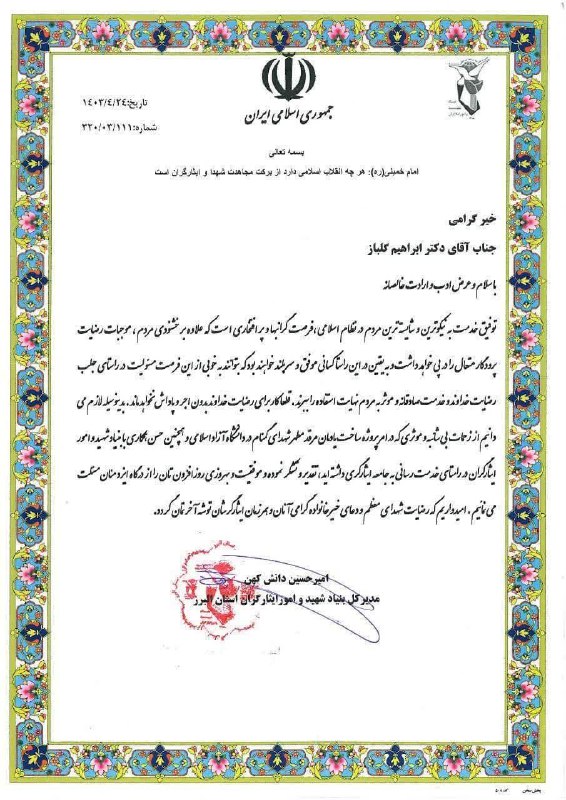 جمهوری اسلامی ایران
تاریخ:۱۴۰۳/۴/۲۴
شماره:۳۳۰/۰۳/۱۱۱
بسمه تعالی
امام خمینی(ره): هر چه انقلاب اسلامی دارد از برکت مجاهدت شهدا و ایثارگران است
خیر گرامی
جناب آقای دکتر ابراهیم گلباز
با سلام و عرض ادب و ارادت خالصانه
توفیق خدمت به نیکوترین و شایسته ترین مردم در نظام اسلامی، فرصت گرانبها و پر افتخاری است که علاوه بر خشنودی مردم، موجبات رضایت
پروردگار متعال را در پی خواهد داشت و به یقین در این راستا کسانی موفق و سربلند خواهند بود که بتوانند به خوبی از این فرصت مسئولیت در راستای جلب
رضایت خداوند و خدمت صادقانه و موثر به مردم نهایت استفاده را ببرند. قطعا کار برای رضایت خداوند بدون اجر و پاداش نخواهد ماند. بدینوسیله لازم می
دانیم از زحمات بی شائبه و موثری که در امر پروژه ساخت یادمان مرقد مطهر شهدای گمنام در دانشگاه آزاد اسلامی و همچنین حسن همکاری با بنیاد شهید و امور
ایثارگران در راستای خدمت رسانی به جامعه ایثارگری داشته اید، تقدیر و تشکر نموده و موفقیت و بهروزی روزافزون تان را از درگاه ایزد منان مسئلت
می نمائیم. امیدواریم که رضایت شهدای معظم و دعای خیر خانواده گرامی آنان و همرزمان ایثارگرشان توشه آخرتمان گردد.
امیرحسین دانش کهن
مدیر کل بنیاد شهید و امور ایثارگران استان البرز